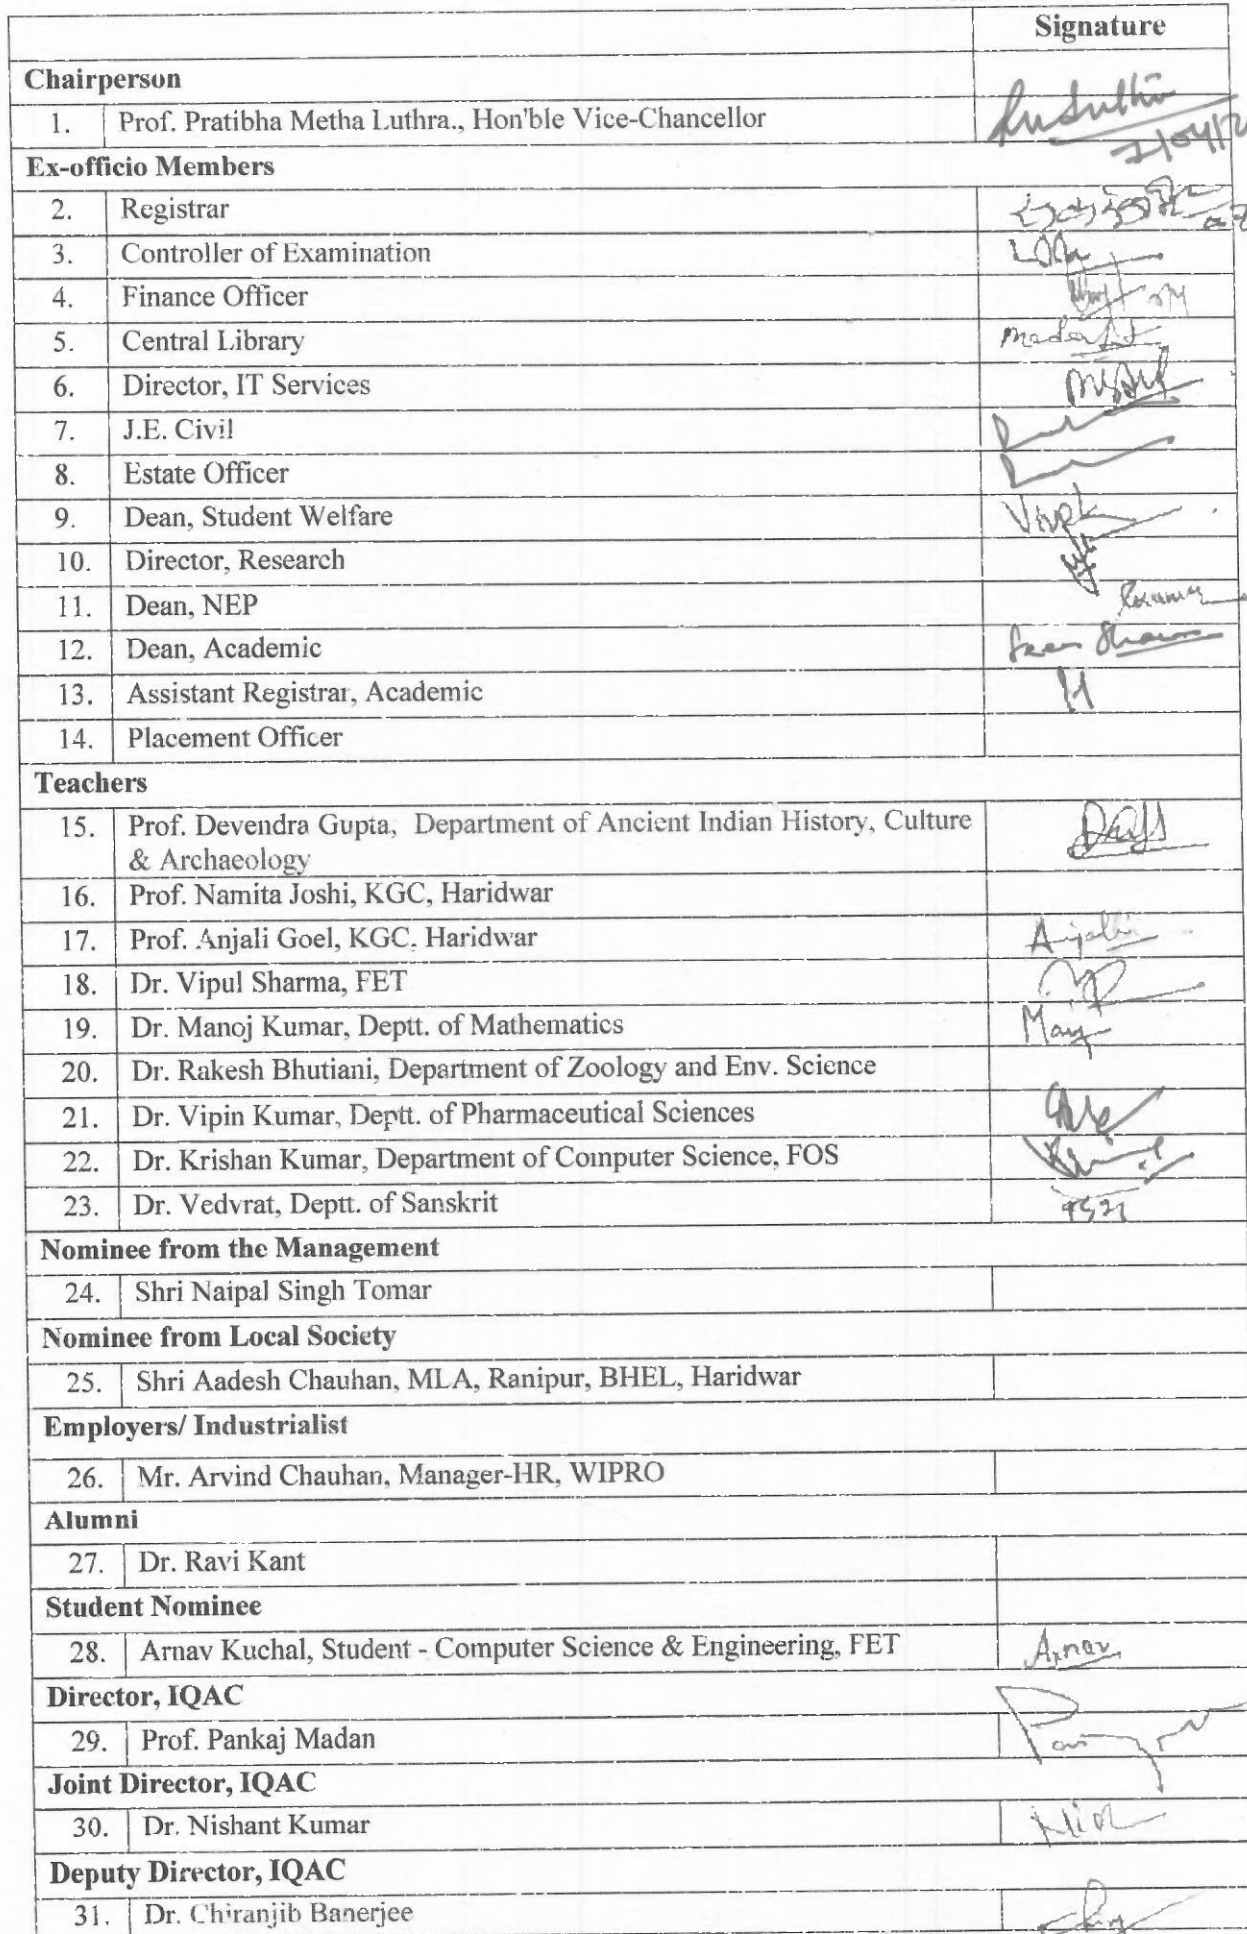 Signature
Chairperson
1. Prof. Pratibha Metha Luthra., Hon'ble Vice-Chancellor
Ex-officio Members
2. Registrar
3. Controller of Examination
4. Finance Officer
5. Central Library
6. Director, IT Services
7. J.E. Civil
8. Estate Officer
9. Dean, Student Welfare
10. Director, Research
11. Dean, NEP
12. Dean, Academic
13. Assistant Registrar, Academic
14. Placement Officer
Teachers
15. Prof. Devendra Gupta, Department of Ancient Indian History, Culture
& Archaeology
16. Prof. Namita Joshi, KGC, Haridwar
17. Prof. Anjali Goel, KGC, Haridwar
18. Dr. Vipul Sharma, FET
19. Dr. Manoj Kumar, Deptt. of Mathematics
20. Dr. Rakesh Bhutiani, Department of Zoology and Env. Science
21. Dr. Vipin Kumar, Deptt. of Pharmaceutical Sciences
22. Dr. Krishan Kumar, Department of Computer Science, FOS
23. Dr. Vedvrat, Deptt. of Sanskrit
Nominee from the Management
24. Shri Naipal Singh Tomar
Nominee from Local Society
25. Shri Aadesh Chauhan, MLA, Ranipur, BHEL, Haridwar
Employers/ Industrialist
26. Mr. Arvind Chauhan, Manager-HR, WIPRO
Alumni
27. Dr. Ravi Kant
Student Nominee
28. Arnav Kuchal, Student - Computer Science & Engineering, FET Arnav
Director, IQAC
29. Prof. Pankaj Madan
Joint Director, IQAC
30. Dr. Nishant Kumar
Deputy Director, IQAC
31. Dr. Chiranjib Banerjee